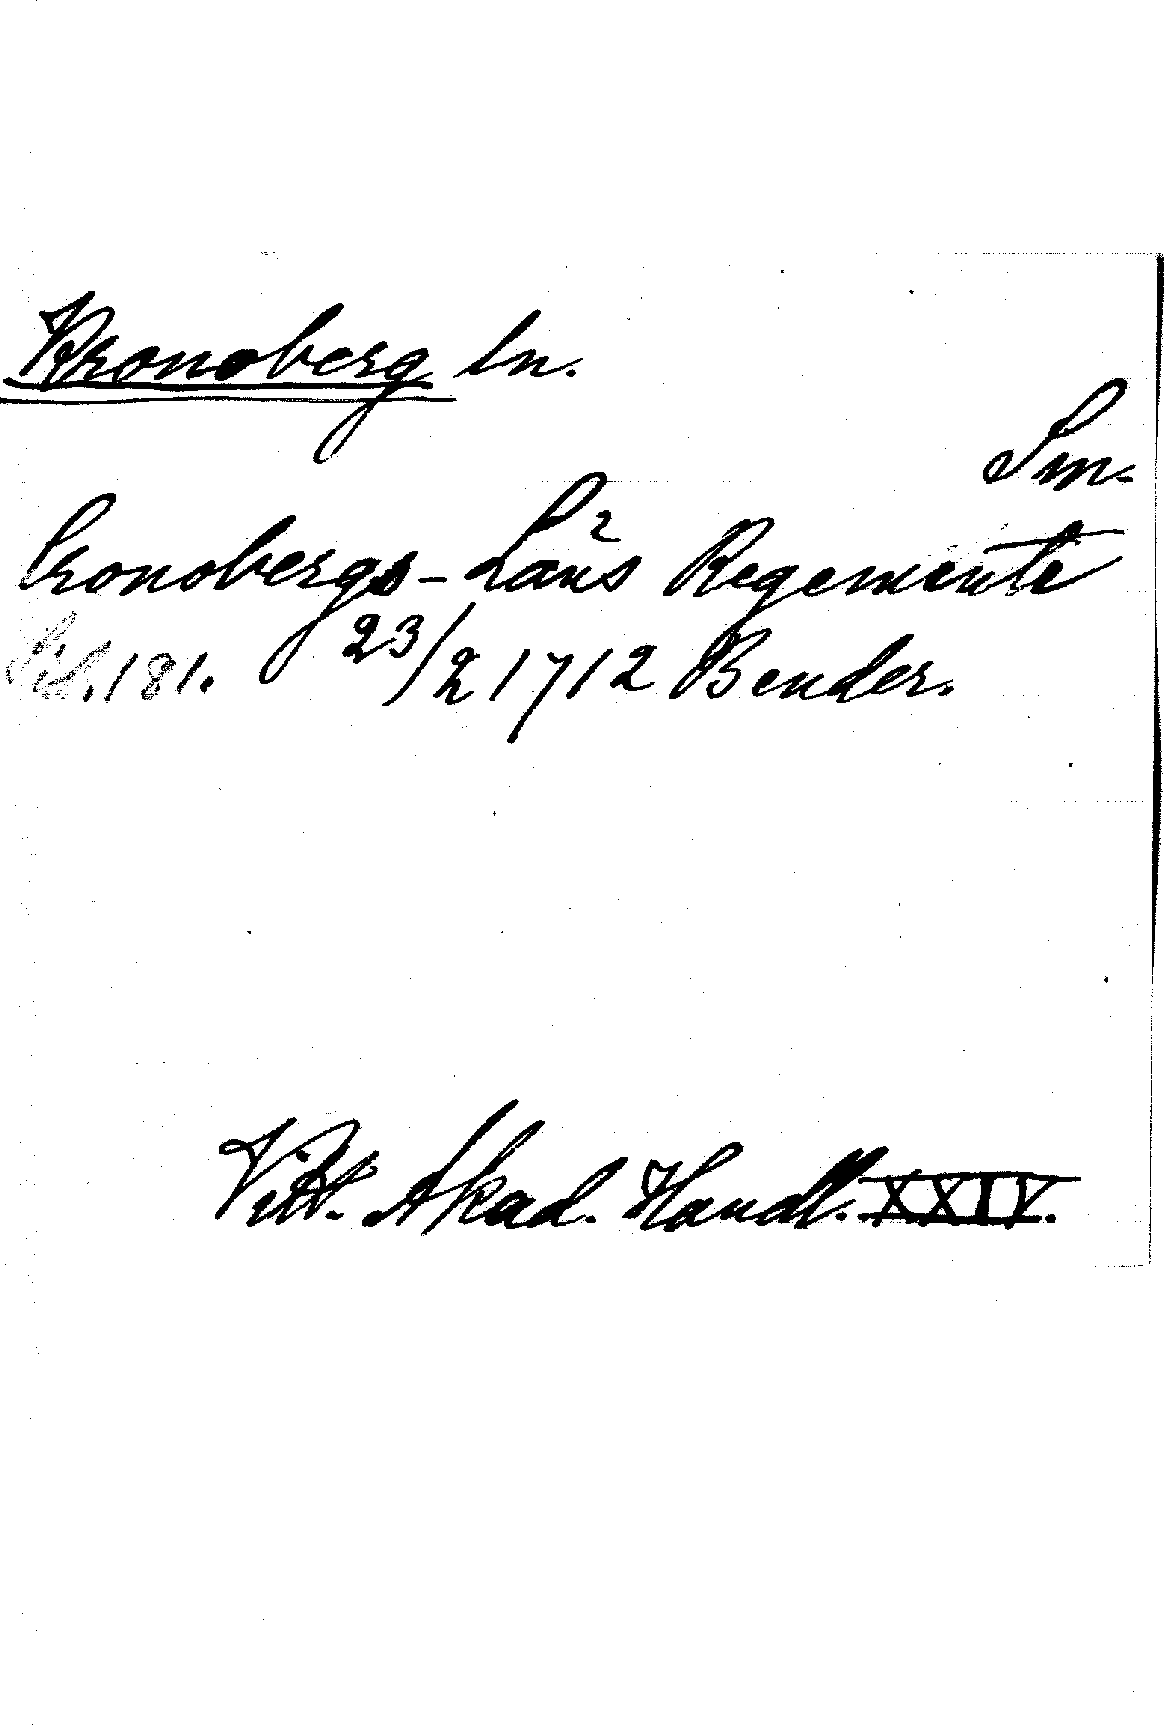 Kronoberg ln.
Sm.
Cronobergs-Läns Regemente
Sid. 181. 23/2 1712 Bender.
Vitt. Akad. Handl. XXIV.